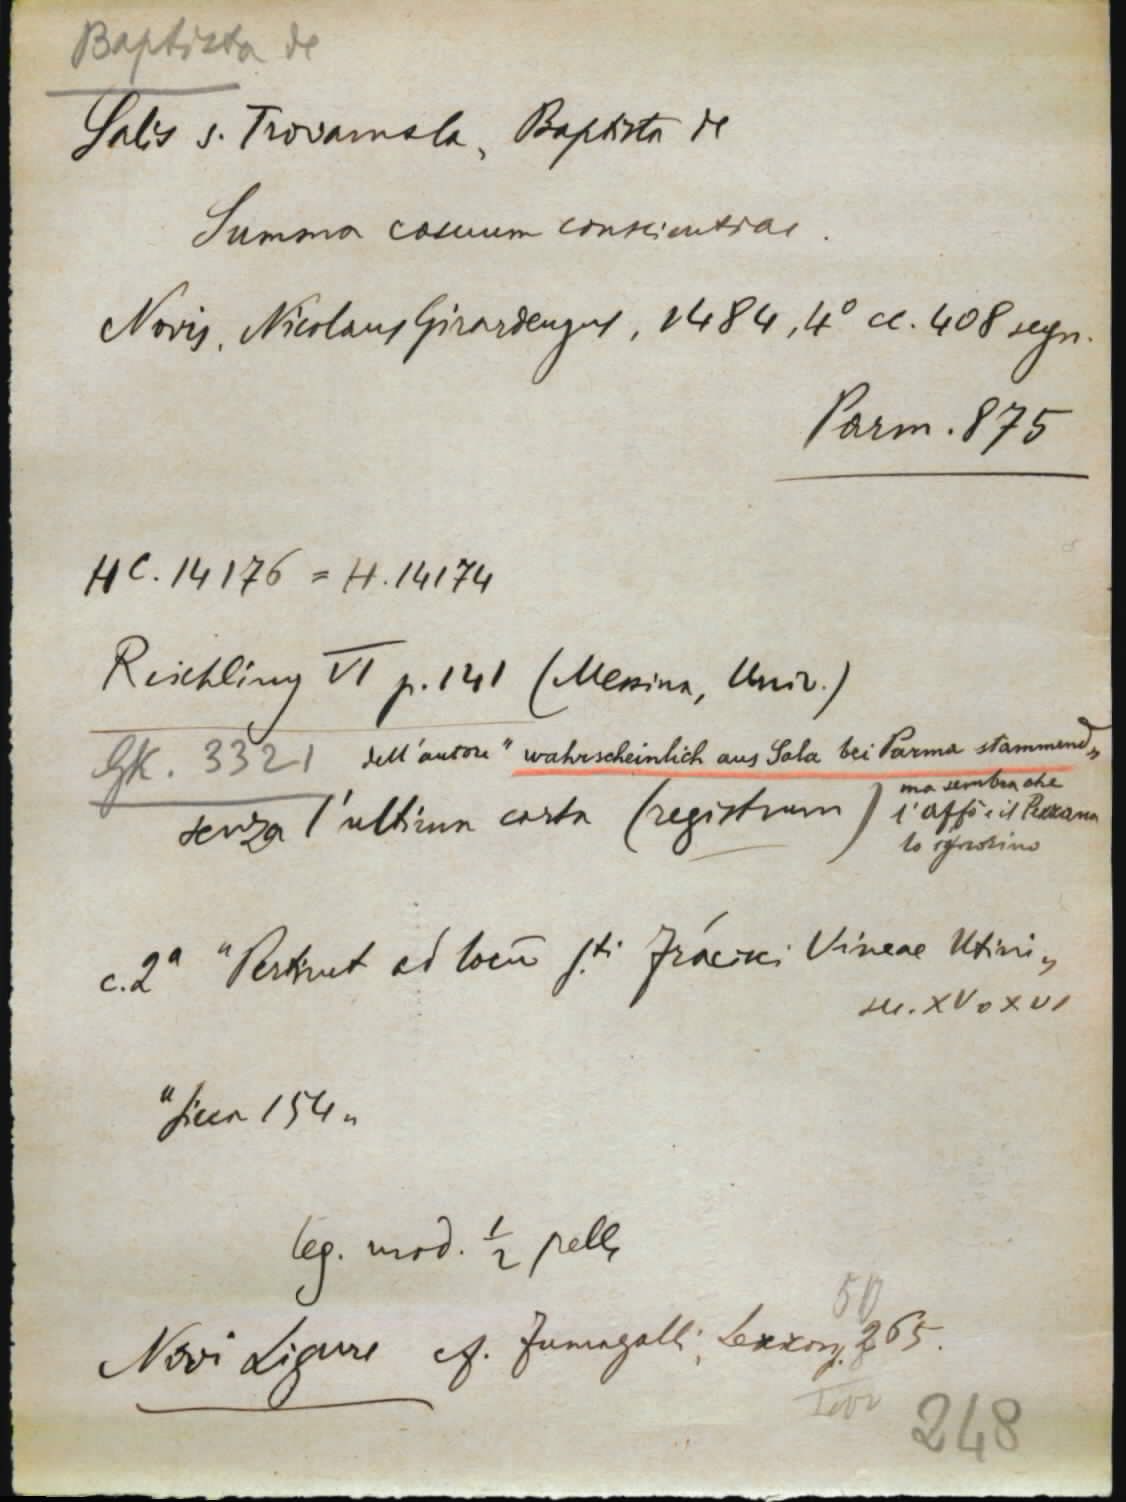 Baptista de
Salis s. Trovamala, Baptista de
Summa casuum conscientiae.
Novis, Nicolaus Girardengus, 1484, 4° cc. 408 segn.
Parm. 875
HC. 14176 = H. 14174
Reichling VI p. 141 (Messina, Univ.)
GK. 3321 dell'autore "wahrscheinlich aus Sala bei Parma stammend„
ma sembra che
senza l'ultima carta (registrum) l'Affò e il Pezzana
lo ignorino
c. 2ª "Pertinet ad locū s.ti Frācisci Vineae Utini„
sec. XV o XVI
154„
leg. mod. ½ pelle
50
Novi Ligure cf. Fumagalli, Lexicon, 265.
248